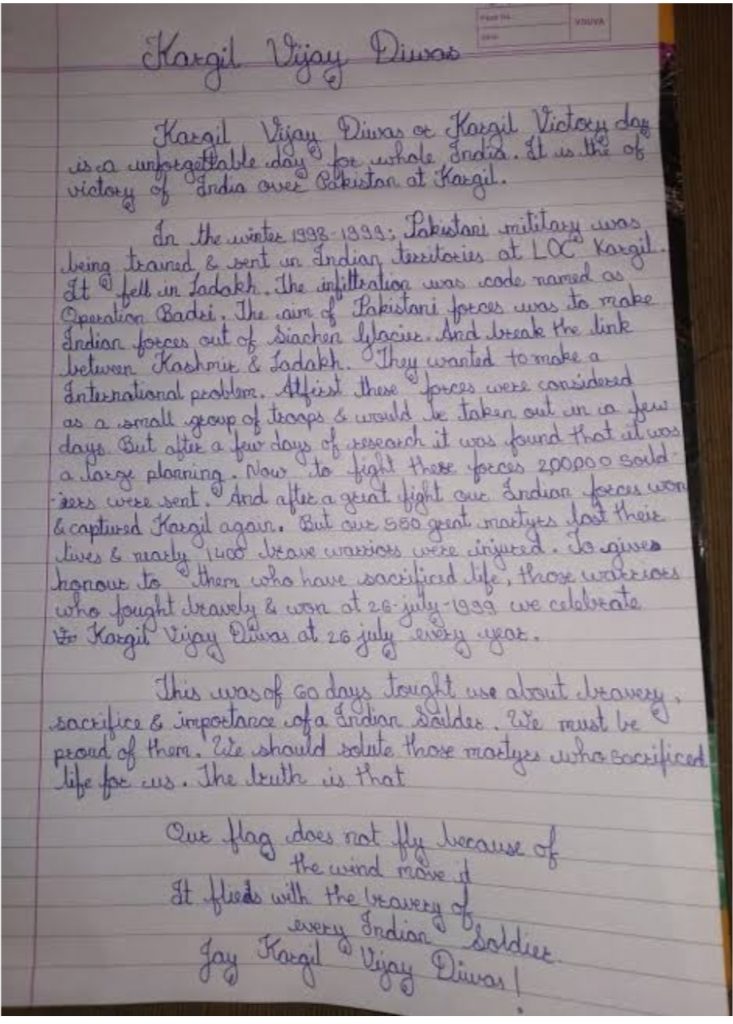 Page No.
Date
YOUVA
Kargil Vijay Diwas
Kargil Vijay Diwas or Kargil Victory day
is a unforgettable day for whole India. It is the of
victory of India over Pakistan at Kargil.
In the winter 1998-1999; Pakistani military was
being trained & sent in Indian territories at LOC Kargil.
It fell in Ladakh. The infiltration was code named as
Operation Badri. The aim of Pakistani forces was to make
Indian forces out of Siachen Glacier. And break the link
between Kashmir & Ladakh. They wanted to make a
International problem. Atfirst these forces were considered
as a small group of troops & would be taken out in a few
days. But after a few days of research it was found that it was
a large planning. Now to fight these forces 200000 sould-
-iers were sent. And after a great fight our Indian forces won
& captured Kargil again. But our 550 great martyrs lost their
lives & nearly 1400 brave warriors were injured. To gives
honour to them who have sacrificed life, those warriors
who fought bravely & won at 26-july-1999 we celebrate
Kargil Vijay Diwas at 26 july every year.
This was of 60 days tought use about bravery,
sacrifice & importance of a Indian Soilder. We must be
proud of them. We should solute those martyrs who sacrificed
life for us. The truth is that
Our flag does not fly because of
the wind move it
It flieds with the bravery of
every Indian Soldier.
Jay Kargil Vijay Diwas!